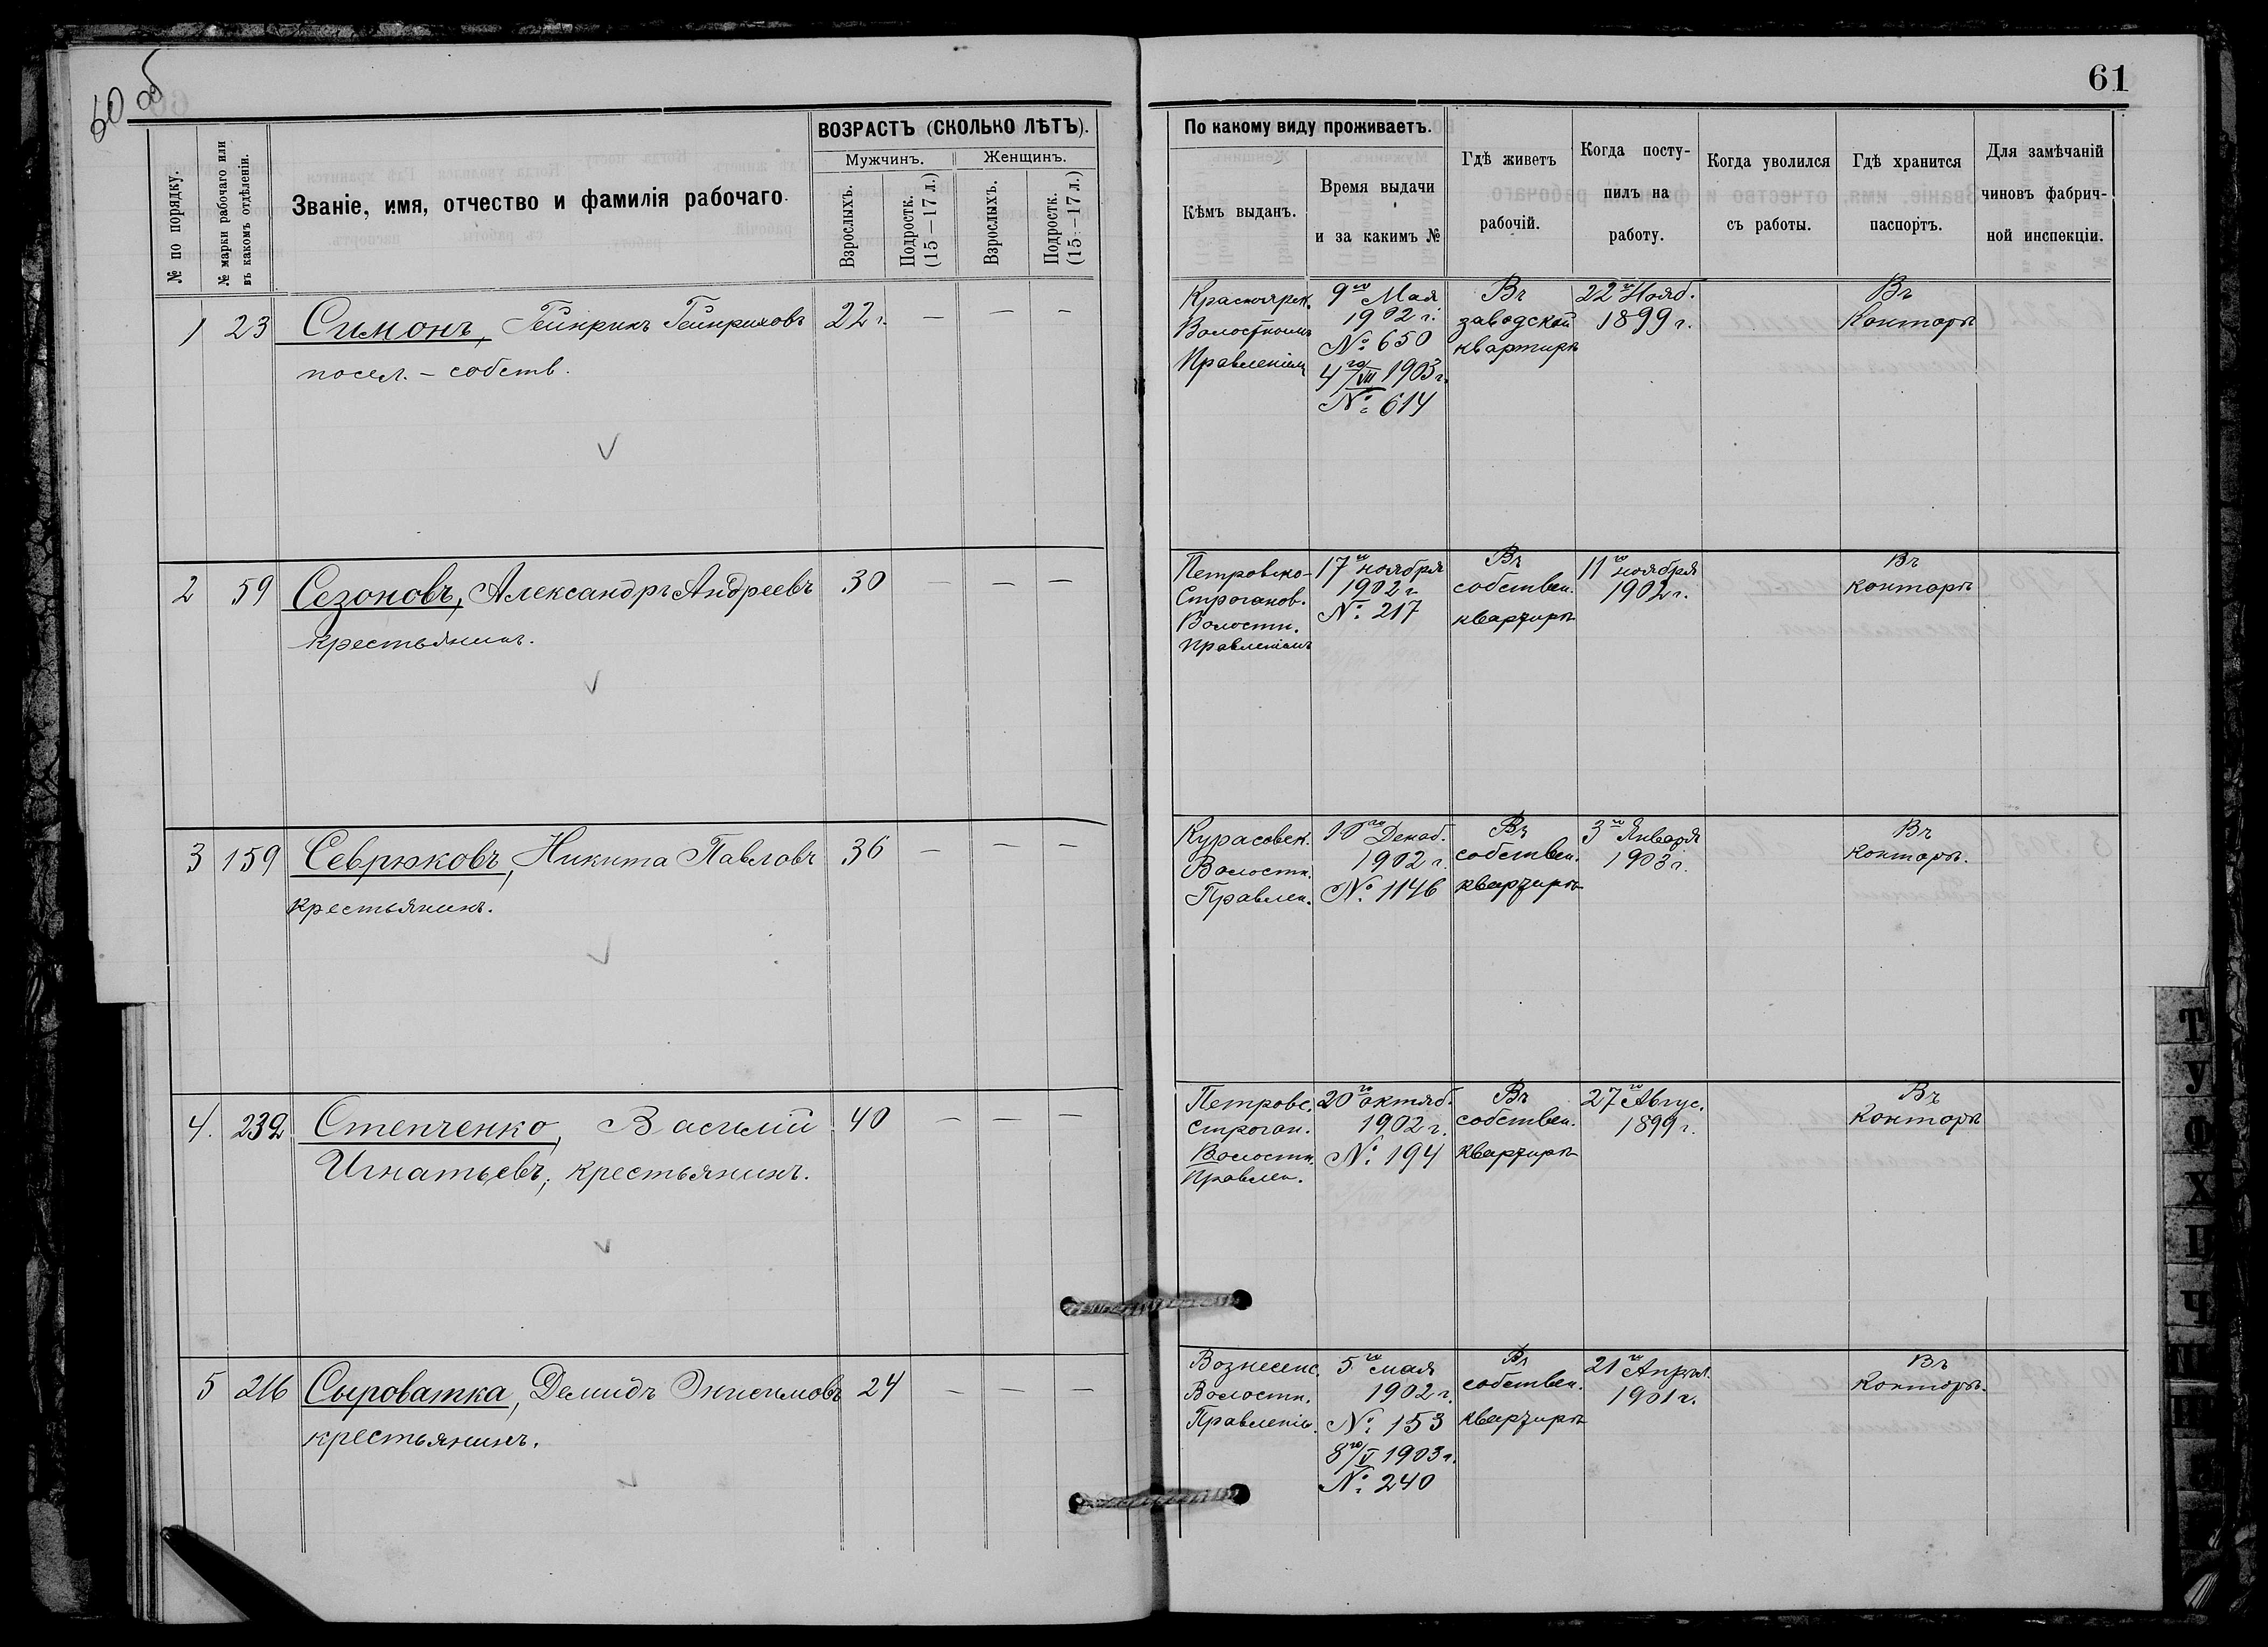 60 об
61
ВОЗРАСТЪ (СКОЛЬКО ЛѢТЪ).
Мужчинъ.
Женщинъ.
№ по порядку.
№ марки рабочаго или
въ какомъ отдѣленіи.
Званіе, имя, отчество и фамилія рабочаго.
Взрослыхъ.
Подростк.
(15—17 л.)
Взрослыхъ.
Подростк.
(15—17 л.)
По какому виду проживаетъ.
Кѣмъ выданъ.
Время выдачи
и за какимъ №
Гдѣ живетъ
рабочій.
Когда посту-
пилъ на
работу.
Когда уволился
съ работы.
Гдѣ хранится
паспортъ.
Для замѣчаній
чиновъ фабрич-
ной инспекціи.
1 23 Симонъ, Гейнрихъ Гейнриховъ 22 г. — — —
посел. - собств.
Красноярск.
Волостнымъ
Правленіемъ
9го Мая
1902 г.
№ 650
4го/VII 1903 г.
№ 614
Въ
заводской
квартирѣ
22го Нояб.
1899 г.
Въ
Конторѣ
2 59 Сезоновъ, Александръ Андреевъ 30 — — —
крестьянинъ.
Петровско-
Строганов.
Волостн.
Правленіемъ
17го ноября
1902 г.
№ 217
Въ
собствен.
квартирѣ
11го ноября
1902 г.
Въ
конторѣ
3 159 Севрюковъ, Никита Павловъ 36 — — —
крестьянинъ.
Курасовск.
Волостн.
Правлен.
10го Декаб.
1902 г.
№ 1146
Въ
собствен.
квартирѣ
3го Января
1903 г.
Въ
конторѣ.
4. 232 Степченко, Василій 40 — — —
Игнатьевъ, крестьянинъ.
Петровс.
Строган.
Волостн.
Правлен.
20го октяб.
1902 г.
№ 194
Въ
собствен.
квартирѣ
27го Авгус.
1899 г.
Въ
конторѣ
5 216 Сыроватка, Демидъ Онисимовъ 24 — — —
крестьянинъ.
Вознесенс.
Волостн.
Правленіе.
5го мая
1902 г.
№ 153
8го/V 1903 г.
№ 240
Въ
собствен.
квартирѣ
21го Апрѣл.
1901 г.
Въ
Конторѣ.
Т
У
Ф
Х
Ц
Ч
Ш
Щ